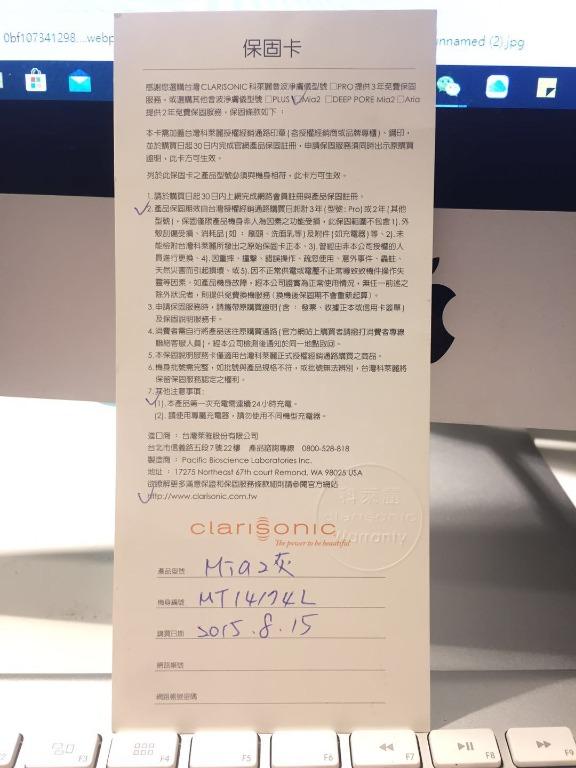 0bf107341298....webp
unnamed (2).jpg
保固卡
感謝您選購台灣CLARISONIC科萊麗音波淨膚儀型號 □PRO提供3年免費保固
服務，或選購其他音波淨膚儀型號 □PLUS □Mia2 □DEEP PORE Mia2 □Aria
提供2年免費保固服務，保固條款如下：
本卡需加蓋台灣科萊麗授權經銷通路印章(含授權經銷商或品牌專櫃)、鋼印，
並於購買日起30日內完成官網產品保固註冊，申請保固服務須同時出示原購買
證明，此卡方可生效。
列於此保固卡之產品型號必須與機身相符，此卡方可生效。
1. 請於購買日起30日內上網完成網路會員註冊與產品保固註冊。
2. 產品保固期效自台灣授權經銷通路購買日起計3年(型號: Pro)或2年(其他
型號)，保固僅限產品機身非人為因素之功能受損，此保固範圍不包含1). 外
殼刮磨受損、消耗品(如：刷頭、洗面乳等)及附件(如充電器)等、2). 未
能檢附台灣科萊麗所發出之原始保固卡正本、3). 曾經由非本公司授權的人
員進行更換、4). 因重摔、撞擊、錯誤操作、疏忽使用、意外事件、蟲蛀、
天然災害而引起損壞、或5). 因不正常供電或電壓不正常導致致機件操作失
靈等因素。如產品機身故障，經本公司證實為正常使用情況，無任一前述之
除外狀況者，則提供免費換機服務(換機後保固期不會重新起算)。
3. 申請保固服務時，請攜帶原購買證明(含：發票、收據正本或信用卡簽單)
及保固說明服務卡。
4. 消費者需自行將產品送往原購買通路(官方網站上購買者請撥打消費者專線
聯絡客服人員)，經本公司檢測後通知於同一地點取回。
5. 本保固說明服務卡僅適用台灣科萊麗正式授權經銷通路購買之商品。
6. 機身批號需完整，如批號與產品規格不符，或批號無法辨別，台灣科萊麗將
保留保固服務認定之權利。
7. 其他注意事項：
(1). 本產品第一次充電需連續24小時充電。
(2). 請使用專屬充電器，請勿使用不同機型充電器。
進口商：台灣萊雅股份有限公司
台北市信義路五段7號22樓 產品諮詢專線 0800-528-818
製造商：Pacific Bioscience Laboratories Inc.
地址：17275 Northeast 67th court Remond, WA 98025 USA
欲瞭解更多滿意保證和保固服務條款細則請參閱官方網站
http://www.clarisonic.com.tw
科萊麗
clarisonic
Warranty
clarisonic
The power to be beautiful
產品型號 Mia2灰
機身編號 MT14174L
購買日期 2015.8.15
網路帳號
網路帳號密碼
F3
F4
F5
F6
F7
F8
F9